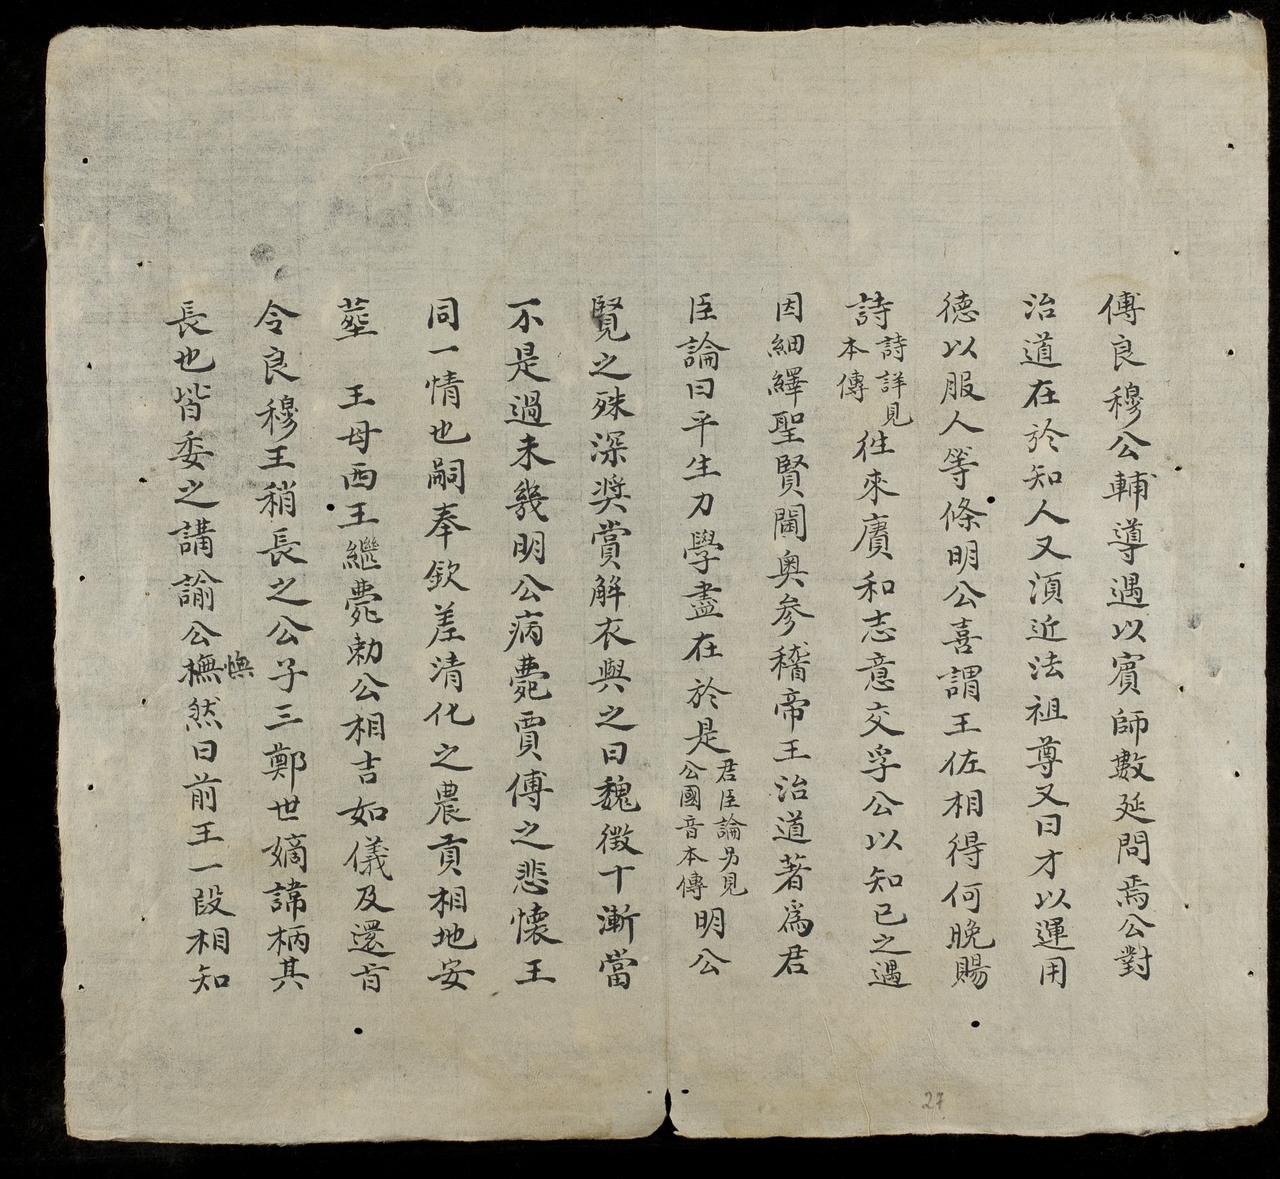 傅良穆公輔導遇以賓師數延問焉公對
治道在於知人又湏近法祖尊又曰才以運用
德以服人等條明公喜謂王佐相得何晚賜
詩詩詳見本傳徃來賡和志意交孚公以知已之遇
因細繹聖賢閫奥参稽帝王治道著爲君
臣論曰平生刀學盡在於是君臣論另見公國音本傳明公
覽之殊深奨賞解衣與之曰魏徴十漸當
不是過未幾明公病薨賈傅之悲懷王
同一情也嗣奉欽差清化之農貢相地安
塟 王母西王繼薨勅公相吉如儀及還肓
令良穆王稍長之公子三鄭世嫡諱柄其
長也皆委之講諭公憮然曰前王一段相知
憮
27